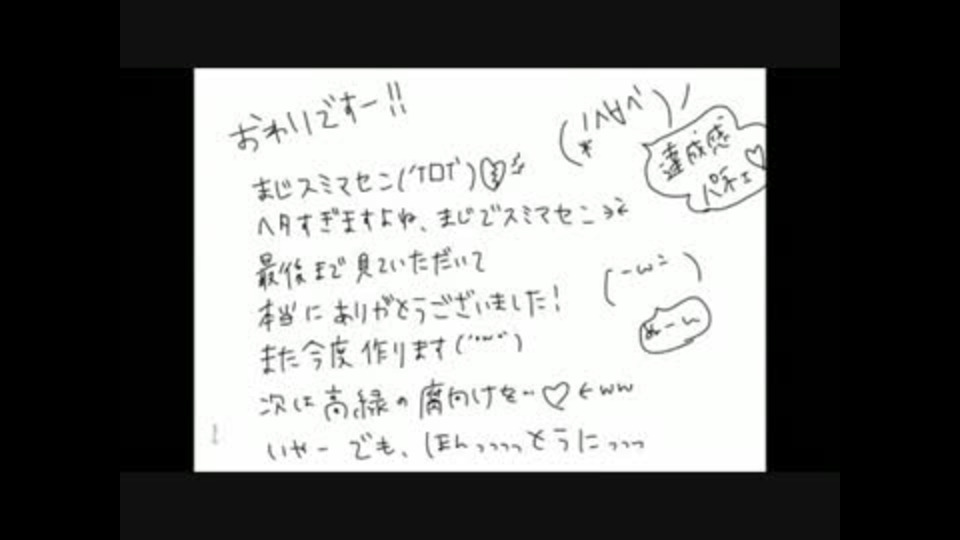 おわりですー!!
達成感
パネェ♡
まじスミマセン(´TロT`)
ヘタすぎますよね、まじでスミマセン
最後まで見ていただいて
本当にありがとうございました!
ぬーん
また今度作ります(´・ω・`)
次は高緑の腐向けを…♡←ww
いやー でも、ほんっっっっとうにっっっ